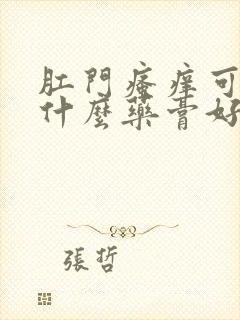 肛門瘙癢可
什麼藥膏好
張哲